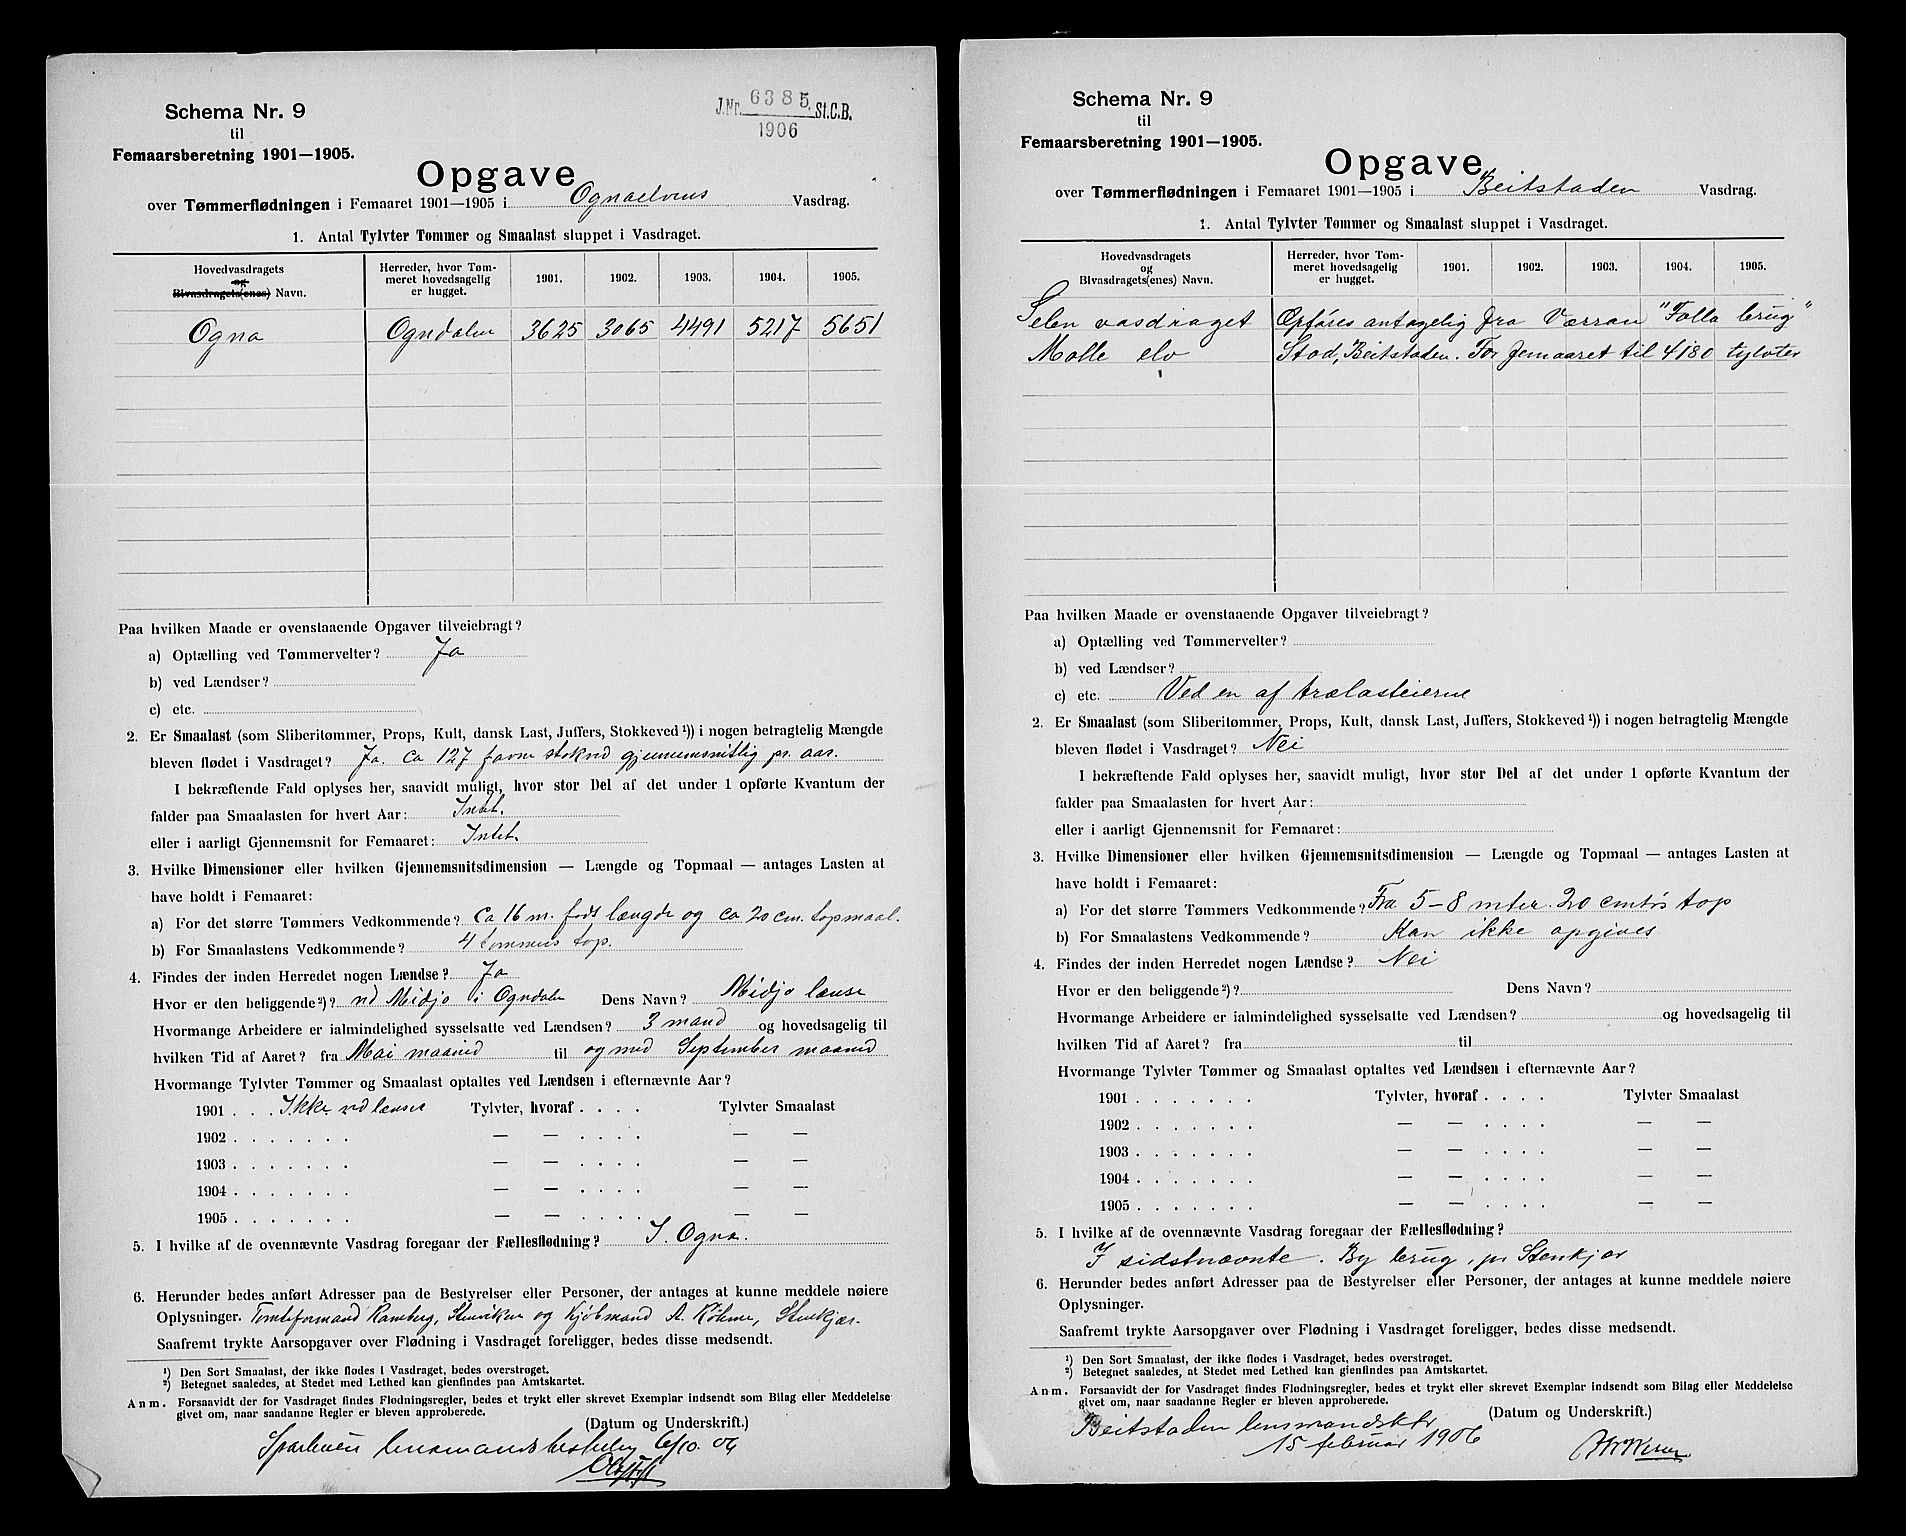 Schema Nr. 9
til
Femaarsberetning 1901—1905.
J.Nr. 6385. St.C.B.
1906
Opgave
over Tømmerflødningen i Femaaret 1901-1905 i Ognaelvens Vasdrag.
1. Antal Tylvter Tømmer og Smaalast sluppet i Vasdraget.
Hovedvasdragets
og
Bivasdragets(enes) Navn.
Herreder, hvor Tøm-
meret hovedsagelig
er hugget.
1901. 1902. 1903. 1904. 1905.
Ogna Ogndalen 3625 3065 4491 5217 5651
Paa hvilken Maade er ovenstaaende Opgaver tilveiebragt?
a) Optælling ved Tømmervelter? Ja
b) ved Lændser?
c) etc.
2. Er Smaalast (som Sliberitømmer, Props, Kult, dansk Last, Juffers, Stokkeved ¹)) i nogen betragtelig Mængde
bleven flødet i Vasdraget? Ja. ca 127 favne stokved gjennemsnitlig pr. aar.
I bekræftende Fald oplyses her, saavidt muligt, hvor stor Del af det under 1 opførte Kvantum der
falder paa Smaalasten for hvert Aar: Intet.
eller i aarligt Gjennemsnit for Femaaret: Intet.
3. Hvilke Dimensioner eller hvilken Gjennemsnitsdimension — Længde og Topmaal — antages Lasten at
have holdt i Femaaret:
a) For det større Tømmers Vedkommende? Ca 16 m. fods længde og ca 20 cm. topmaal.
b) For Smaalastens Vedkommende? 4 tommers top.
4. Findes der inden Herredet nogen Lændse? Ja
Hvor er den beliggende²)? ved Midjo i Ogndalen Dens Navn? Midjo lænse
Hvormange Arbeidere er ialmindelighed sysselsatte ved Lændsen? 3 mand og hovedsagelig til
hvilken Tid af Aaret? fra Mai maaned til og med September maaned
Hvormange Tylvter Tømmer og Smaalast optaltes ved Lændsen i efternævnte Aar?
1901 . . . Ikke ved lænser Tylvter, hvoraf . . . . Tylvter Smaalast
1902 . . . . . . . — — . . . . — —
1903 . . . . . . . — — . . . . — —
1904 . . . . . . . — — . . . . — —
1905 . . . . . . . — — . . . . — —
5. I hvilke af de ovennævnte Vasdrag foregaar der Fællesflødning? I Ogna.
6. Herunder bedes anført Adresser paa de Bestyrelser eller Personer, der antages at kunne meddele nøiere
Oplysninger. Tomteformand Ramberg, Stenkjær og Kjøbmand A. Røhme, Stenkjær.
Saafremt trykte Aarsopgaver over Flødning i Vasdraget foreligger, bedes disse medsendt.
¹) Den Sort Smaalast, der ikke flødes i Vasdraget, bedes overstrøget.
²) Betegnet saaledes, at Stedet med Lethed kan gienfindes paa Amtskartet.
Anm. Forsaavidt der for Vasdraget findes Flødningsregler, bedes et trykt eller skrevet Exemplar indsendt som Bilag eller Meddelelse
givet om, naar saadanne Regler er bleven approberede.
(Datum og Underskrift.)
Sparbuen lensmandsbestilling 6/10. 06
Schema Nr. 9
til
Femaarsberetning 1901—1905.
Opgave
over Tømmerflødningen i Femaaret 1901-1905 i Beitstaden Vasdrag.
1. Antal Tylvter Tømmer og Smaalast sluppet i Vasdraget.
Hovedvasdragets
og
Bivasdragets(enes) Navn.
Herreder, hvor Tøm-
meret hovedsagelig
er hugget.
1901. 1902. 1903. 1904. 1905.
Selen vasdraget Opføres antagelig fra Værran "Folla brug"
Molle elv Stod, Beitstaden. For femaaret til 4180 tylvter
Paa hvilken Maade er ovenstaaende Opgaver tilveiebragt?
a) Optælling ved Tømmervelter?
b) ved Lændser?
c) etc. Ved en af trælasteierne
2. Er Smaalast (som Sliberitømmer, Props, Kult, dansk Last, Juffers, Stokkeved ¹)) i nogen betragtelig Mængde
bleven flødet i Vasdraget? Nei
I bekræftende Fald oplyses her, saavidt muligt, hvor stor Del af det under 1 opførte Kvantum der
falder paa Smaalasten for hvert Aar:
eller i aarligt Gjennemsnit for Femaaret:
3. Hvilke Dimensioner eller hvilken Gjennemsnitsdimension — Længde og Topmaal — antages Lasten at
have holdt i Femaaret:
a) For det større Tømmers Vedkommende? Fra 5-8 mter. 20 cmtrs top
b) For Smaalastens Vedkommende? Kan ikke opgives
4. Findes der inden Herredet nogen Lændse? Nei
Hvor er den beliggende²)? Dens Navn?
Hvormange Arbeidere er ialmindelighed sysselsatte ved Lændsen? og hovedsagelig til
hvilken Tid af Aaret? fra til
Hvormange Tylvter Tømmer og Smaalast optaltes ved Lændsen i efternævnte Aar?
1901 . . . . . . . Tylvter, hvoraf . . . . Tylvter Smaalast
1902 . . . . . . . — — . . . . — —
1903 . . . . . . . — — . . . . — —
1904 . . . . . . . — — . . . . — —
1905 . . . . . . . — — . . . . — —
5. I hvilke af de ovennævnte Vasdrag foregaar der Fællesflødning?
I sidstnævnte. By brug, pr Stenkjær
6. Herunder bedes anført Adresser paa de Bestyrelser eller Personer, der antages at kunne meddele nøiere
Oplysninger.
Saafremt trykte Aarsopgaver over Flødning i Vasdraget foreligger, bedes disse medsendt.
¹) Den Sort Smaalast, der ikke flødes i Vasdraget, bedes overstrøget.
²) Betegnet saaledes, at Stedet med Lethed kan gienfindes paa Amtskartet.
Anm. Forsaavidt der for Vasdraget findes Flødningsregler, bedes et trykt eller skrevet Exemplar indsendt som Bilag eller Meddelelse
givet om, naar saadanne Regler er bleven approberede.
(Datum og Underskrift.)
Beitstaden lensmandsktr
15 februar 1906